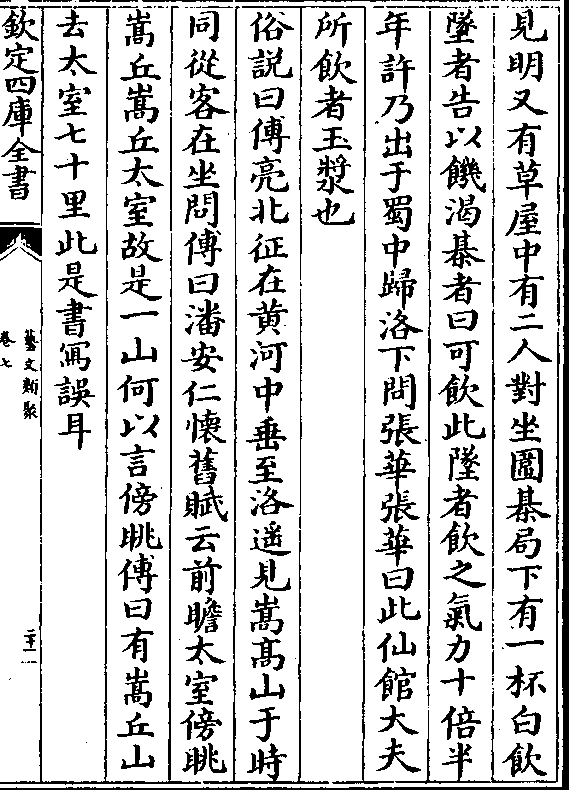 見明又有草屋中有二人對坐圍棊局下有一杯白飲
墜者告以饑渴棊者曰可飲此墜者飲之氣力十倍半
年許乃出于蜀中歸洛下問張華張華曰此仙館大夫
所飲者玉漿也
俗説曰傅亮北征在黄河中垂至洛遥見嵩髙山于時
同從客在坐問傅曰潘安仁懷舊賦云前瞻太室傍眺
嵩丘嵩丘太室故是一山何以言傍眺傅曰有嵩丘山
去太室七十里此是書寫誤耳
欽定四庫全書
藝文類聚
卷七